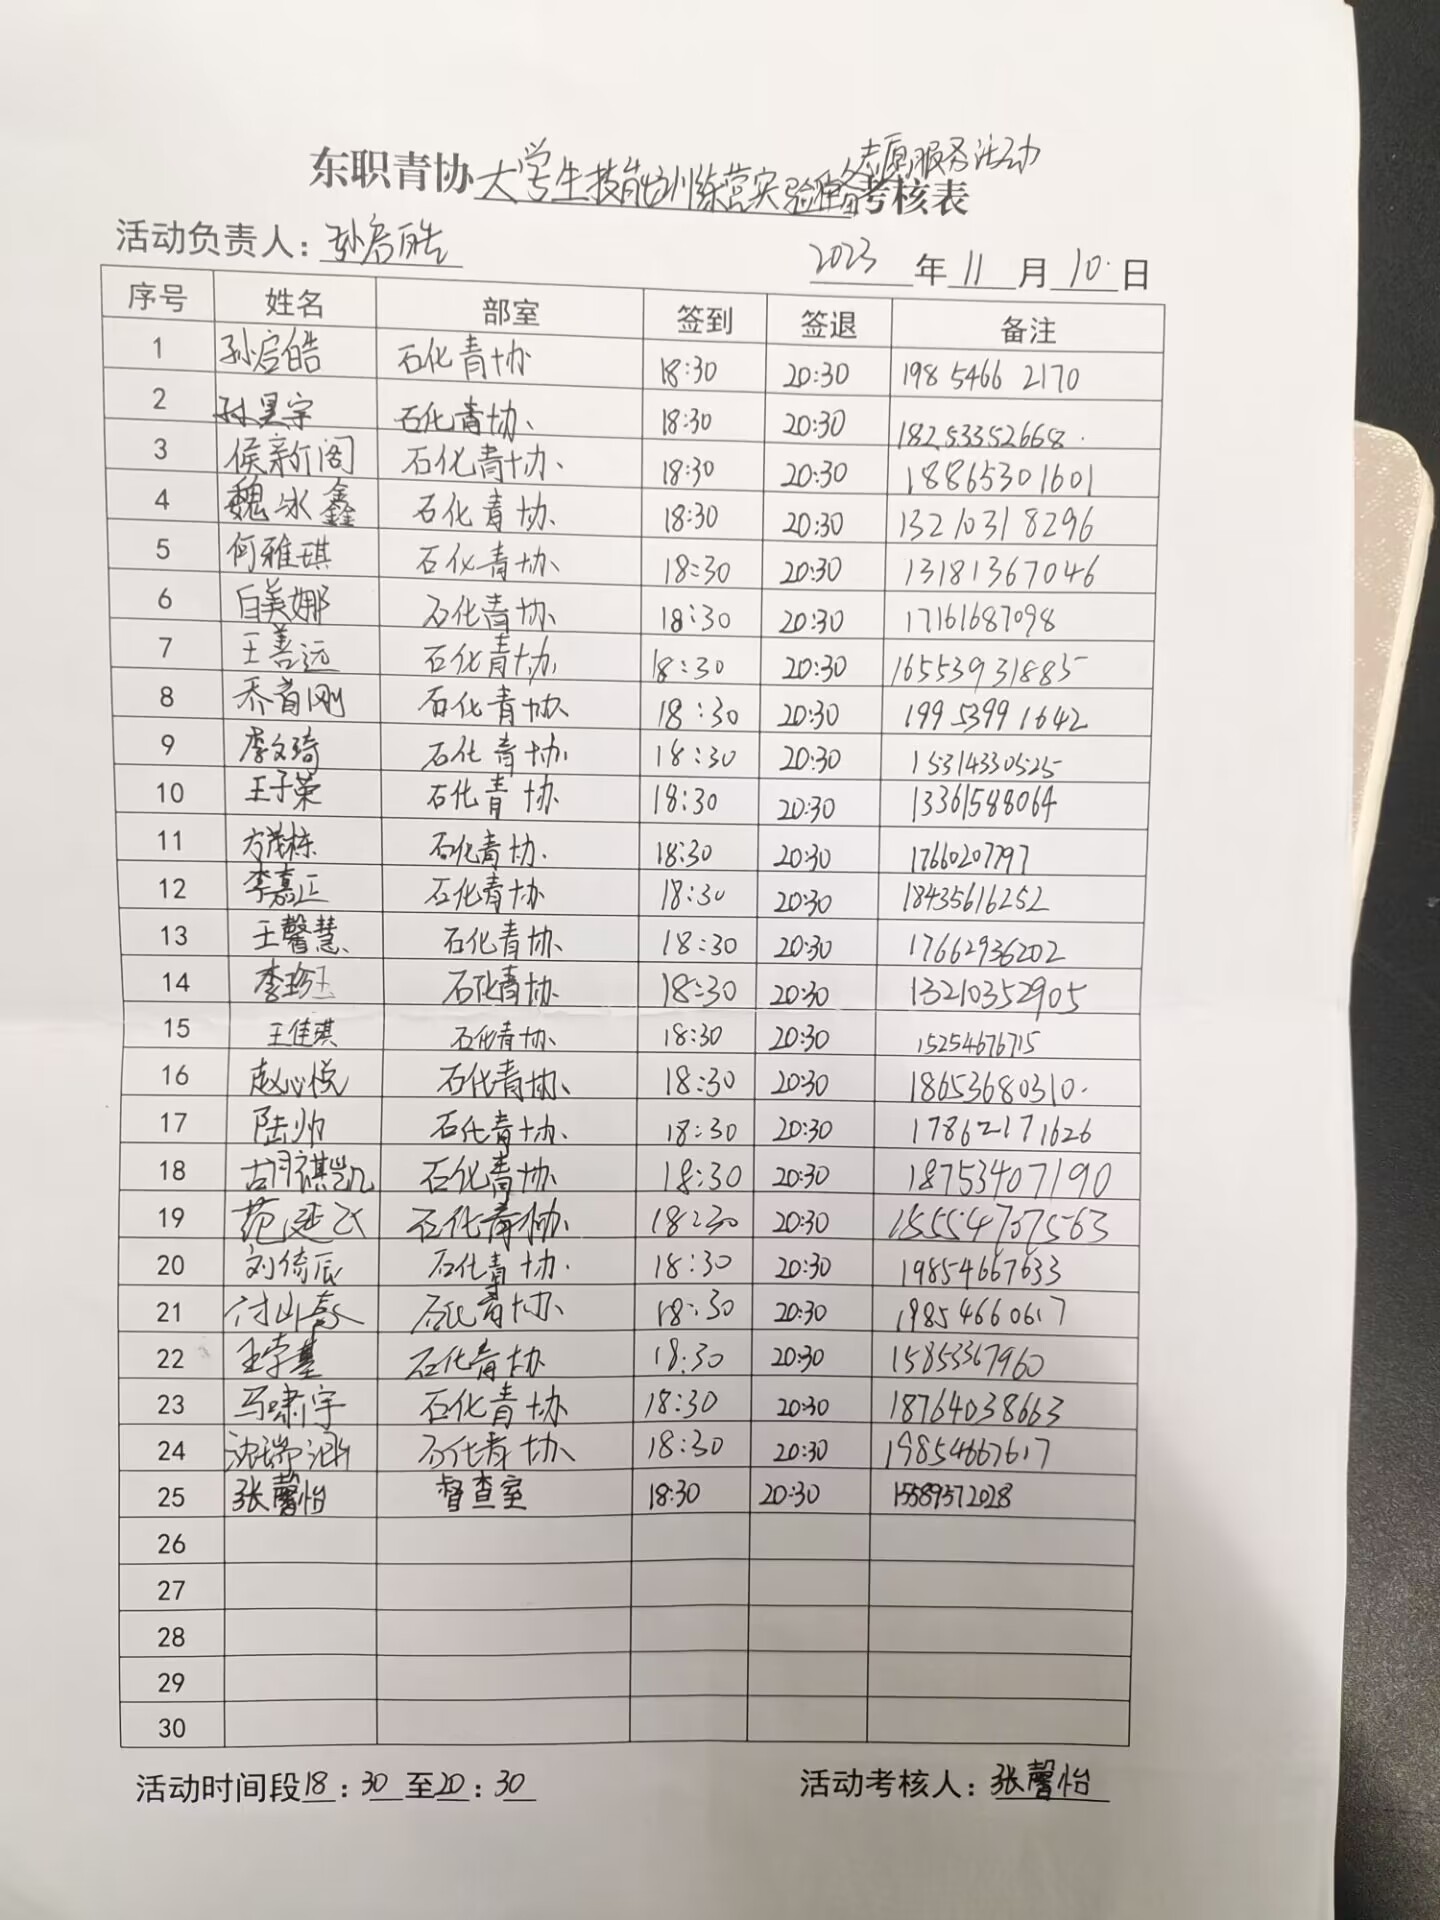 东职青协大学生技能培训练营实验准备志愿服务活动考核表
活动负责人：孙启皓 2023年11月10日
序号 姓名 部室 签到 签退 备注
1 孙启皓 石化青协 18:30 20:30 198 5466 2170
2 孙昊宇 石化青协 18:30 20:30 18253352668
3 侯新阁 石化青协 18:30 20:30 18865301601
4 魏冰鑫 石化青协 18:30 20:30 13210318296
5 何雅琪 石化青协 18:30 20:30 13181367046
6 白美娜 石化青协 18:30 20:30 17161687098
7 王善远 石化青协 18:30 20:30 16553931885
8 乔首刚 石化青协 18:30 20:30 19953991642
9 李文琦 石化青协 18:30 20:30 15314330525
10 王子荣 石化青协 18:30 20:30 13361588064
11 方茂栋 石化青协 18:30 20:30 17660207797
12 李嘉正 石化青协 18:30 20:30 18435616252
13 王馨慧 石化青协 18:30 20:30 17662936202
14 李珍玉 石化青协 18:30 20:30 13210352905
15 王佳琪 石化青协 18:30 20:30 15254676715
16 赵心悦 石化青协 18:30 20:30 18653680310
17 陆帅 石化青协 18:30 20:30 17862171626
18 胡祺凯 石化青协 18:30 20:30 18753407190
19 范延飞 石化青协 18:30 20:30 15554707563
20 刘倚辰 石化青协 18:30 20:30 19854667633
21 付山 石化青协 18:30 20:30 19854660617
22 王学基 石化青协 18:30 20:30 15853367960
23 马啸宇 石化青协 18:30 20:30 18764038663
24 石化青协 18:30 20:30 19854667617
25 张馨怡 督查室 18:30 20:30 15589572028
26
27
28
29
30
活动时间段18：30至20：30 活动考核人：张馨怡